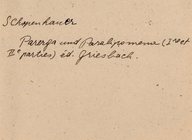 Schopenhauer
Parerga und Paralipomena (I° et
II° parties) éd. Griesbach.